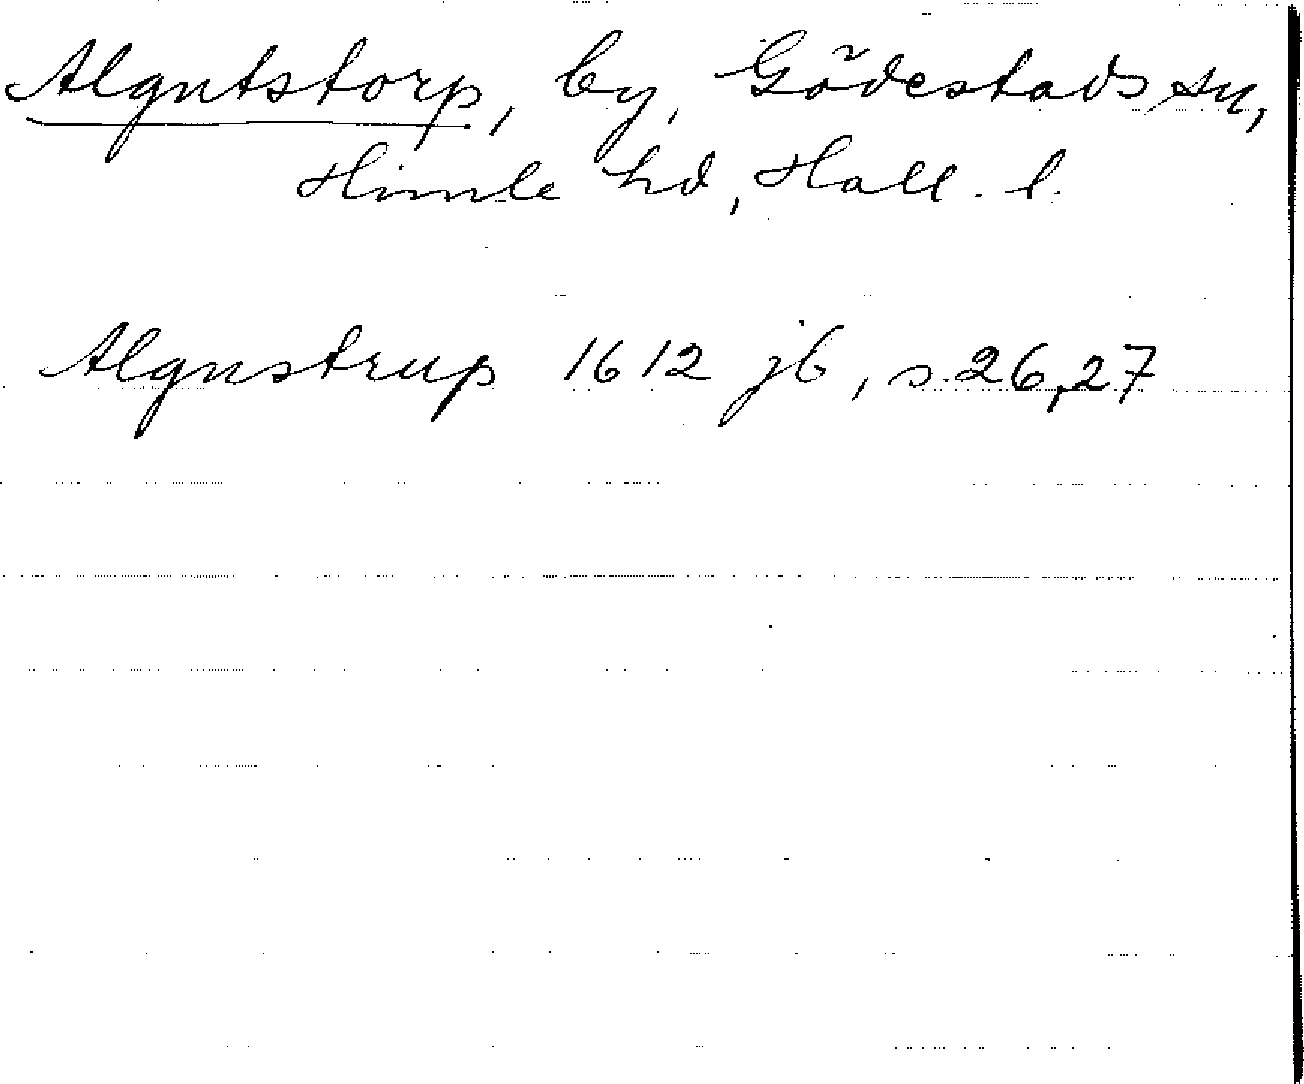 Algutstorp, by, Gödestads sn,
Himle hd, Hall. l.
Algustrup 1612 jb, s. 26, 27